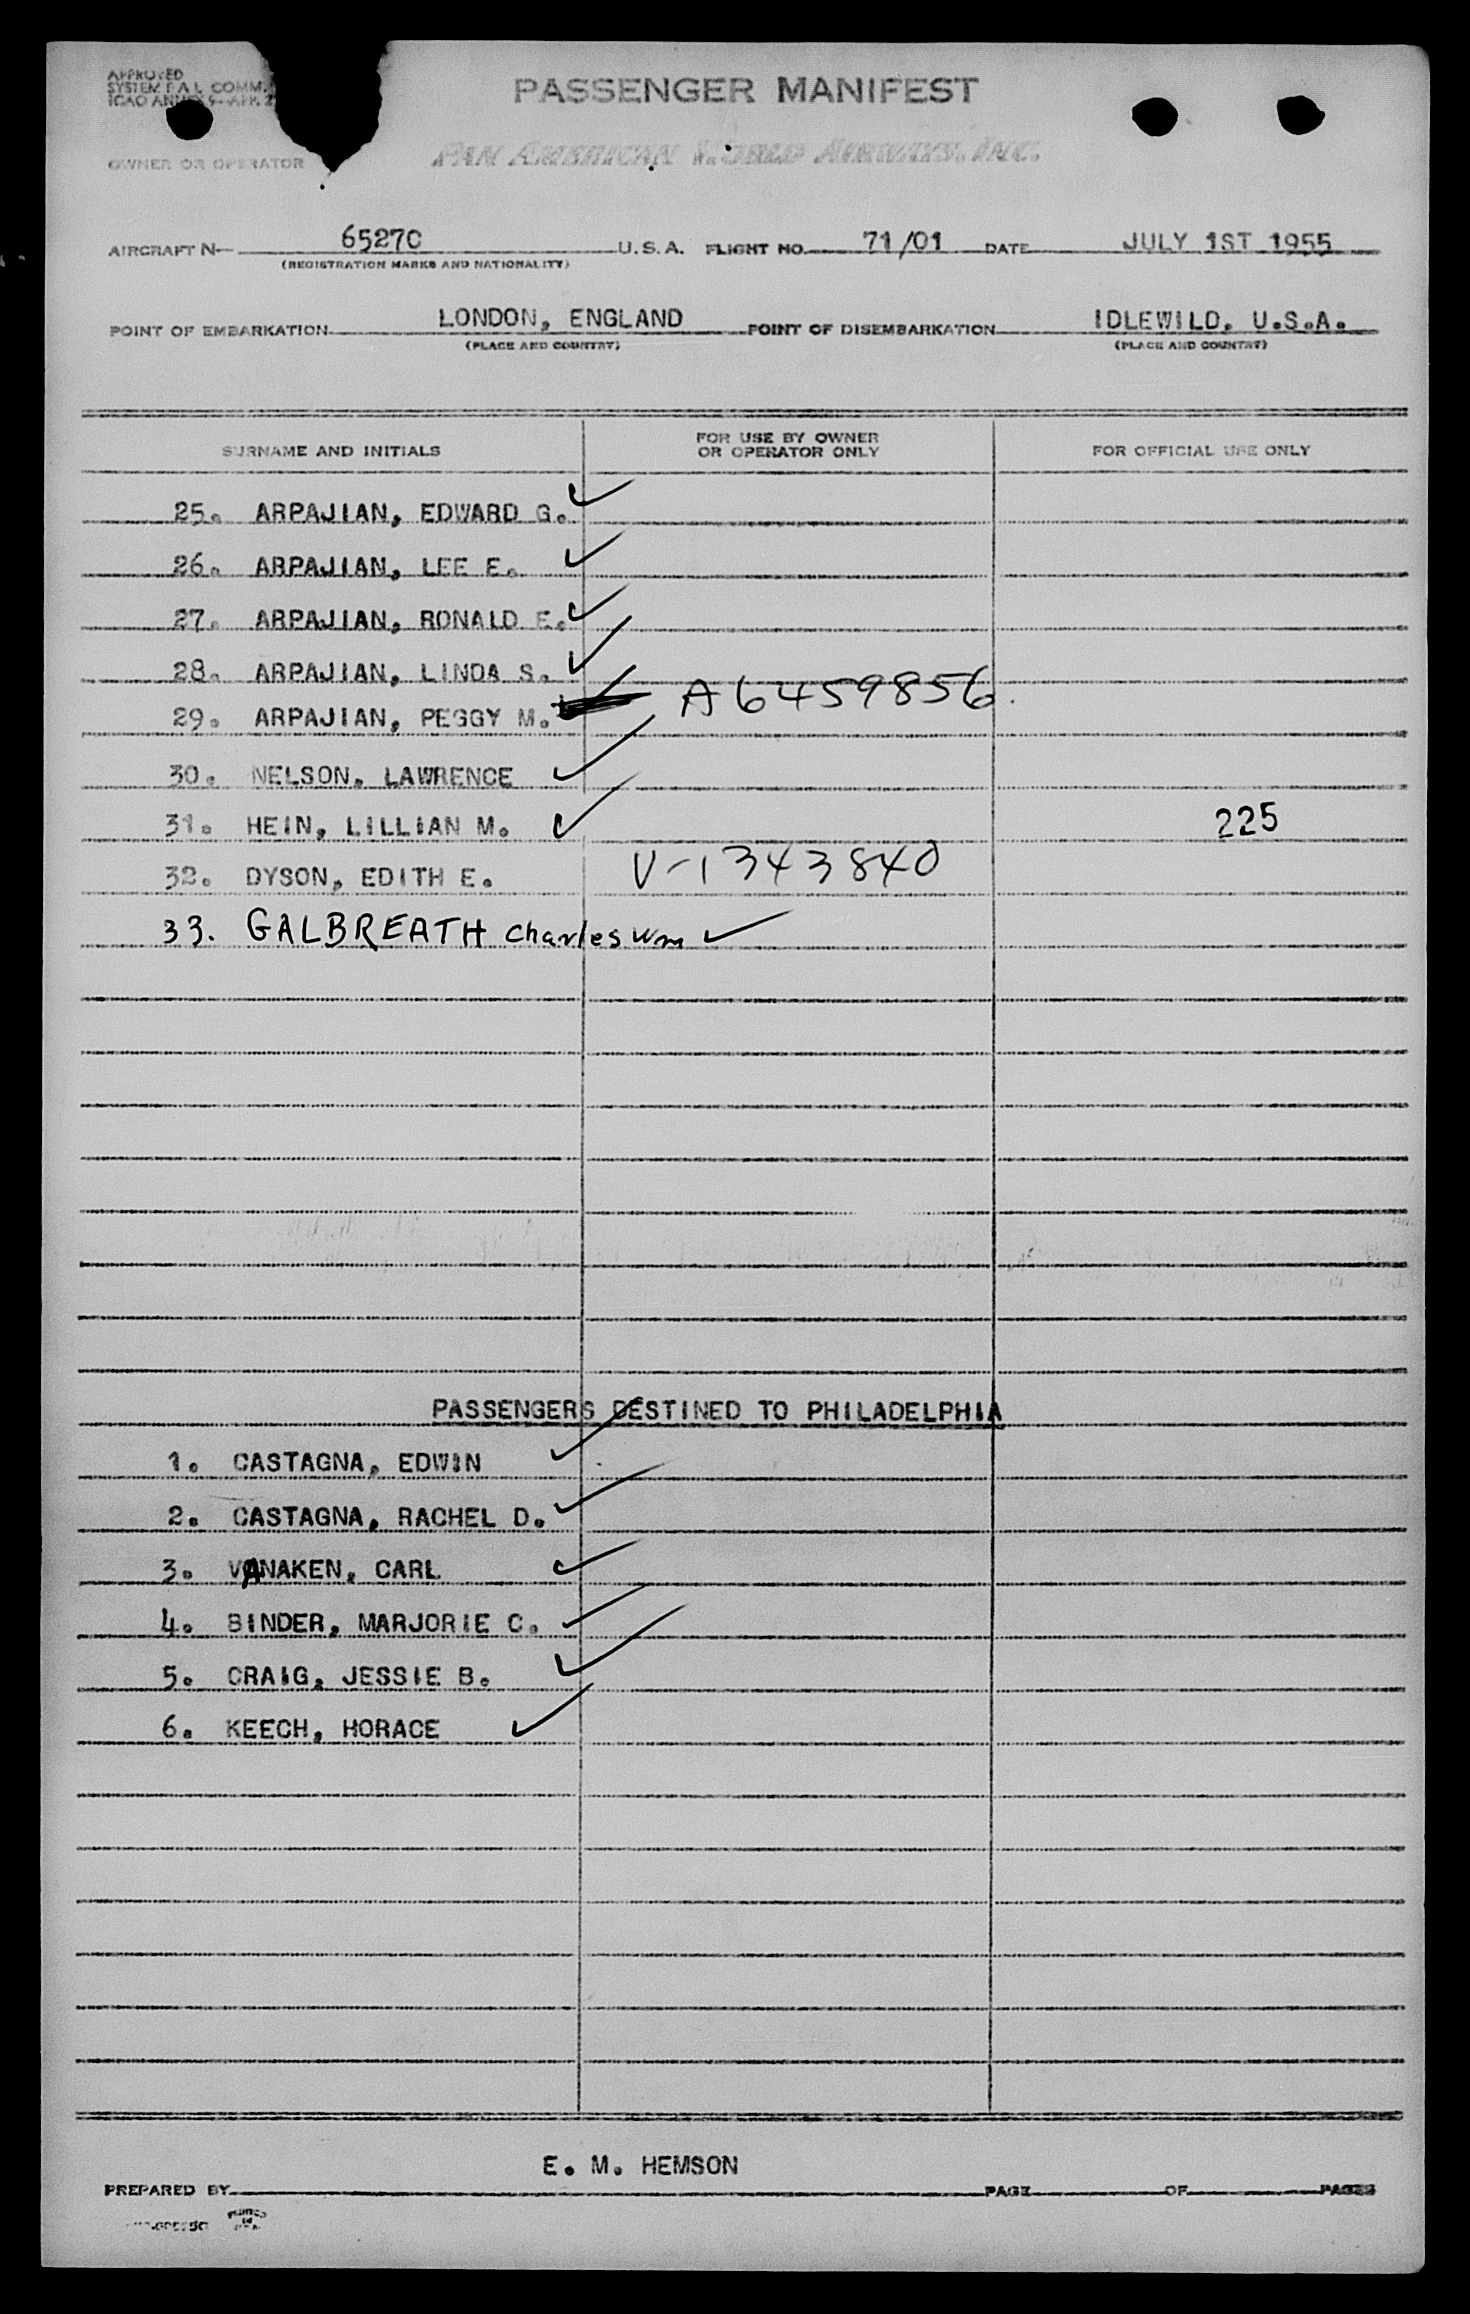 APPROVED
SYSTEM F A L COMM.
ICAO ANNEX 9-APR. 2
PASSENGER MANIFEST
OWNER OR OPERATOR PAN AMERICAN WORLD AIRWAYS, INC.
AIRCRAFT N- 6527C U.S.A. FLIGHT NO. 71/01 DATE JULY 1ST 1955
(REGISTRATION MARKS AND NATIONALITY)
POINT OF EMBARKATION LONDON, ENGLAND POINT OF DISEMBARKATION IDLEWILD, U.S.A.
(PLACE AND COUNTRY) (PLACE AND COUNTRY)
SURNAME AND INITIALS FOR USE BY OWNER OR OPERATOR ONLY FOR OFFICIAL USE ONLY
25. ARPAJIAN, EDWARD G. ✓
26. ARPAJIAN, LEE E. ✓
27. ARPAJIAN, RONALD E. ✓
28. ARPAJIAN, LINDA S. ✓
29. ARPAJIAN, PEGGY M. A6459856
30. NELSON, LAWRENCE ✓
31. HEIN, LILLIAN M. ✓ 225
32. DYSON, EDITH E. V-1343840
33. GALBREATH Charles Wm ✓
PASSENGERS DESTINED TO PHILADELPHIA
1. CASTAGNA, EDWIN ✓
2. CASTAGNA, RACHEL D. ✓
3. VANAKEN, CARL ✓
4. BINDER, MARJORIE C. ✓
5. CRAIG, JESSIE B. ✓
6. KEECH, HORACE ✓
E. M. HEMSON
PREPARED BY PAGE OF PAGES
PRINTED
IN
U.S.A.